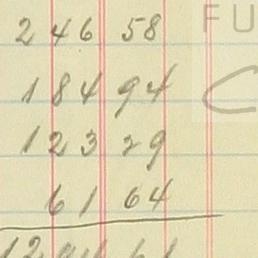 246 58
FU
184 94
123 29
61 64